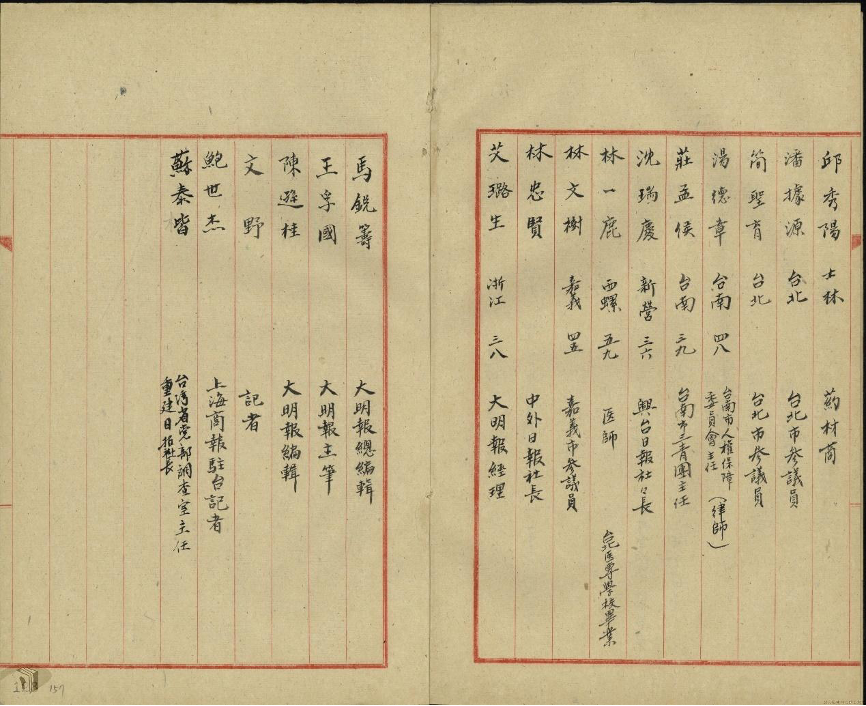 邱秀陽 士林 葯材商
潘據源 台北 台北市參議員
简聖育 台北 台北市參議員
湯德章 台南 四八 台南市人權保障委員會主任（律師）
莊孟侯 台南 三九 台南市三青團主任
沈瑞慶 新營 三六 興台日報社々長
林一鹿 西螺 五九 医師 台北医專學校畢業
林文樹 嘉義 四五 嘉義市參議員
林忠賢 中外日報社長
艾璐生 浙江 三八 大明報經理
馬銳籌 大明報總編輯
王孚國 大明報主筆
陳遜桂 大明報編輯
文野 記者
鮑世杰 上海商報駐台記者
蘇泰楷 台湾省党部調查室主任
重建日報社長
157